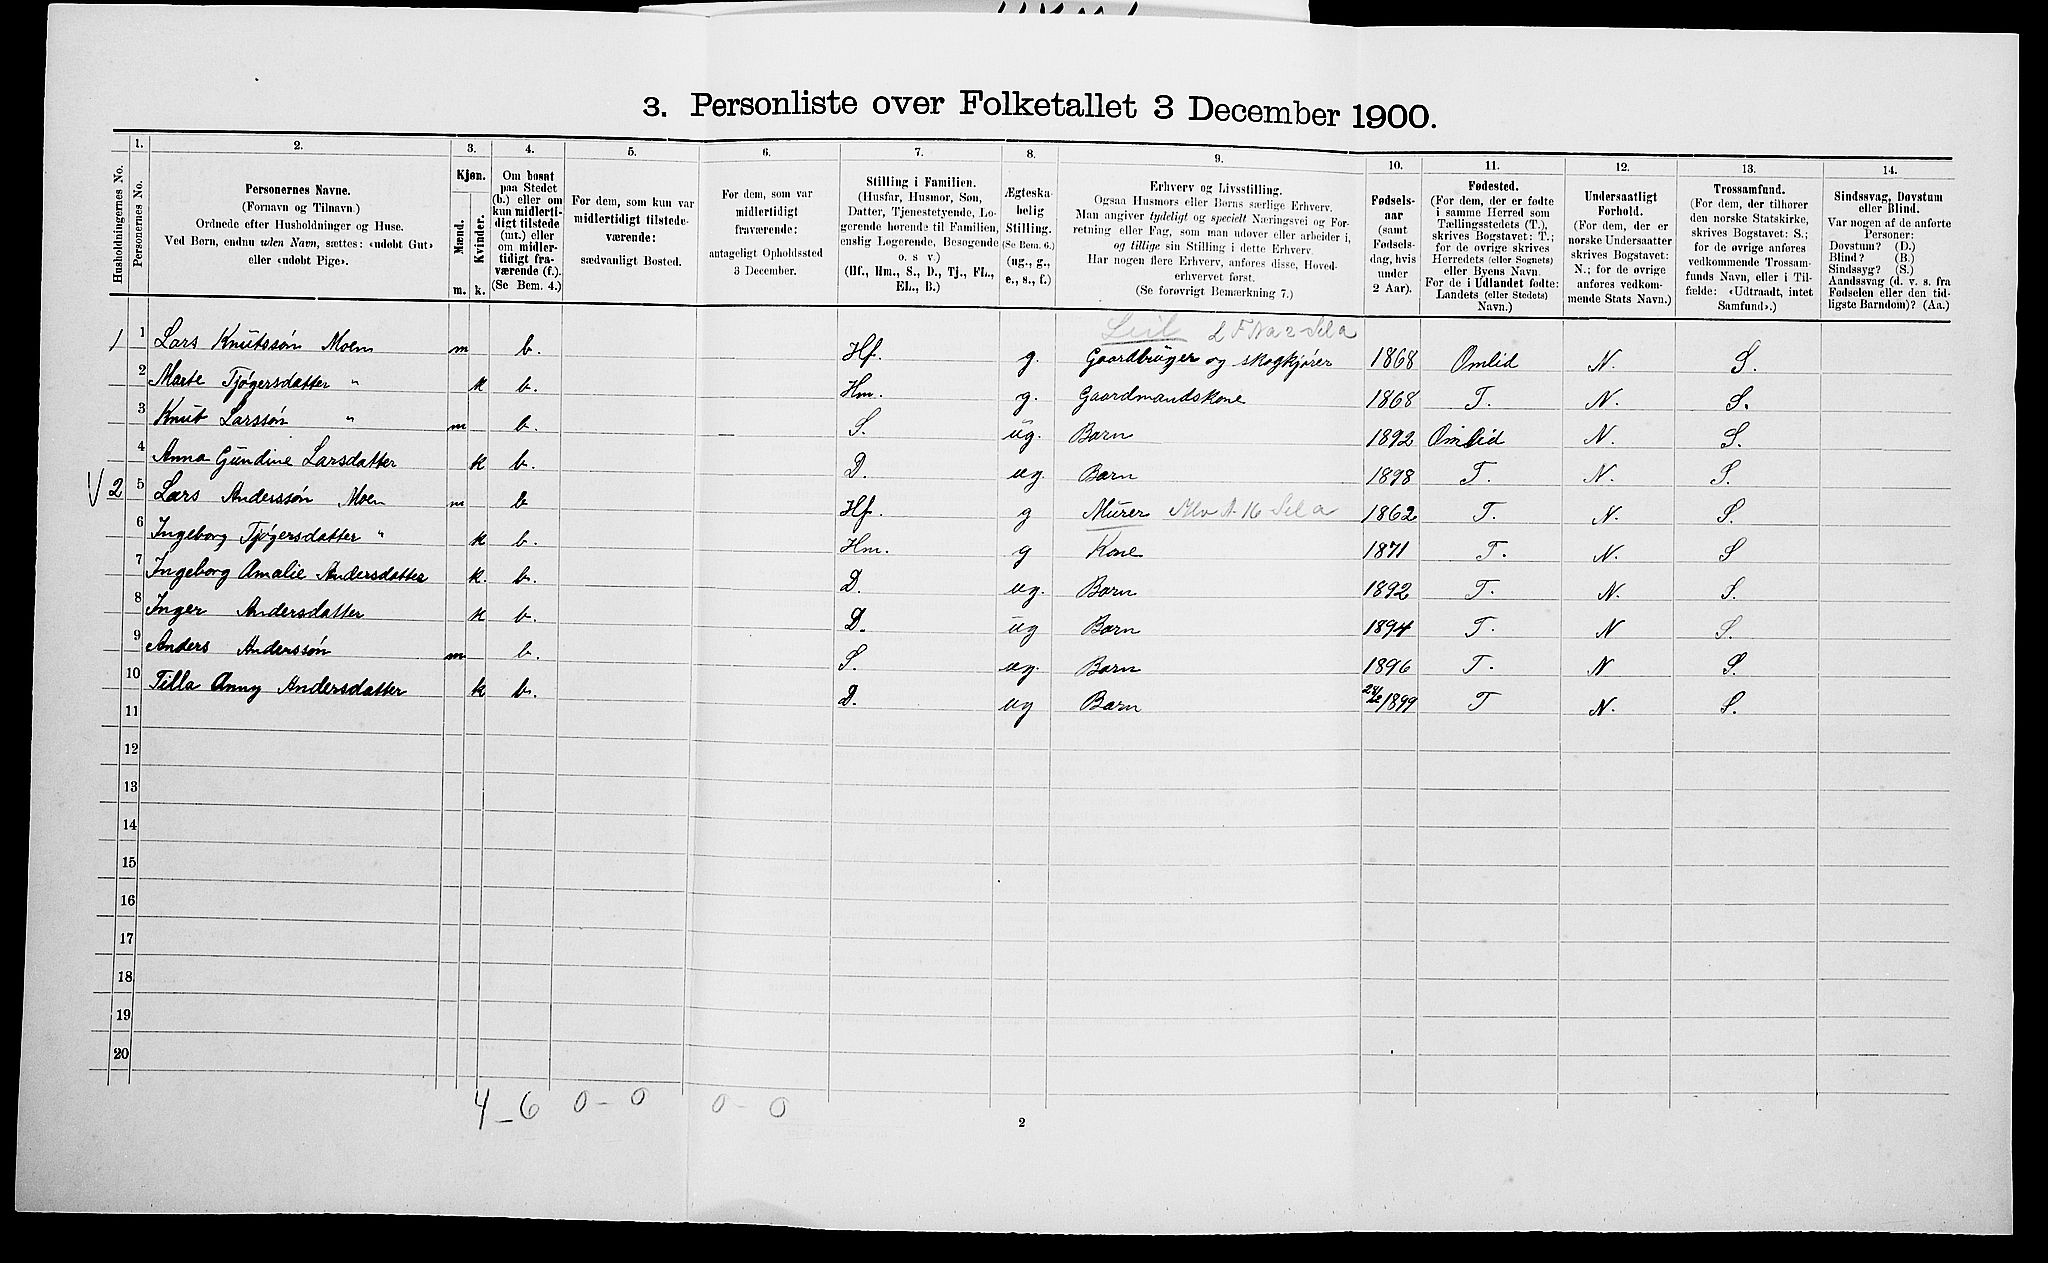 3. Personliste over Folketallet 3 December 1900.
Husholdningernes No.
1.
Personernes No.
2.
Personernes Navne.
(Fornavn og Tilnavn.)
Ordnede efter Husholdninger og Huse.
Ved Børn, endnu uden Navn, sættes: «udøbt Gut»
eller «udøbt Pige».
3.
Kjøn.
Mænd.
Kvinder.
m. k.
4.
Om bosat
paa Stedet
(b.) eller om
kun midlerti-
digt tilstede
(mt.) eller
om midler-
tidigt fra-
værende (f.).
(Se Bem. 4.)
5.
For dem, som kun var
midlertidigt tilstede-
værende:
sædvanligt Bosted.
6.
For dem, som var
midlertidigt
fraværende:
antageligt Opholdssted
3 December.
7.
Stilling i Familien.
(Husfar, Husmor, Søn,
Datter, Tjenestetyende, Lo-
gerende hørende til Familien,
enslig Logerende, Besøgende
o. s v.)
(Hf., Hm., S., D., Tj., FL.,
EL., B.)
8.
Ægteska-
belig
Stilling.
(Se Bem. 6.)
(ug., g.,
e., s., f.)
9.
Erhverv og Livsstilling.
Ogsaa Husmors eller Børns særlige Erhverv.
Man angiver tydeligt og specielt Næringsvei og For-
retning eller Fag, som man udøver eller arbeider i,
og tillige sin Stilling i dette Erhverv.
Har nogen flere Erhverv, anføres disse, Hoved-
erhvervet først.
(Se forøvrigt Bemærkning 7.)
10.
Fødsels-
aar
(samt
Fødsels-
dag, hvis
under
2 Aar).
11.
Fødested.
(For dem, der er fødte
i samme Herred som
Tællingsstedets (T.),
skrives Bogstavet: T.;
for de øvrige skrives
Herredets (eller Sognets)
eller Byens Navn.
For de i Udlandet fødte:
Landets (eller Stedets)
Navn.)
12.
Undersaatligt
Forhold.
(For dem, der er
norske Undersaatter
skrives Bogstavet:
N.; for de øvrige
anføres vedkom-
mende Stats Navn.)
13.
Trossamfund.
(For dem, der tilhører
den norske Statskirke,
skrives Bogstavet: S.;
for de øvrige anføres
vedkommende Trossam-
funds Navn, eller i Til-
fælde: «Udtraadt, intet
Samfund».)
14.
Sindssvag, Døvstum
eller Blind.
Var nogen af de anførte
Personer:
Døvstum? (D.)
Blind? (B.)
Sindssyg? (S.)
Aandssvag (d. v. s. fra
Fødselen eller den tid-
ligste Barndom)? (Aa.)
1 1 Lars Knutssøn Moen m b. Hf. g. Gaardbruger og skogkjører 1868 Omlid N. S.
2 Marte Tjøgersdatter " k b. Hm. g. Gaardmandskone 1868 T. N. S.
3 Knut Larssøn " m b. S. ug. Barn 1892 Omlid N. S.
4 Anna Gundine Larsdatter k b. D. ug. Barn 1898 T. N. S.
V 2 5 Lars Anderssøn Moen m b Hf. g Murer 1862 T. N. S.
6 Ingeborg Tjøgersdatter " k b. Hm. g Kone 1871 T. N. S
7 Ingeborg Amalie Andersdatter k. b. D. ug. Barn 1892 T. N. S.
8 Inger Andersdatter k b. D. ug Barn 1894 T. N S.
9 Anders Anderssøn m b. S. ug. Barn 1896 T. N S.
10 Tilla Anny Andersdatter k b. D. ug Barn 1899 T N. S.
11
12
13
14
15
16
17
18
19
20
4 - 6 0 - 0 0 - 0
2